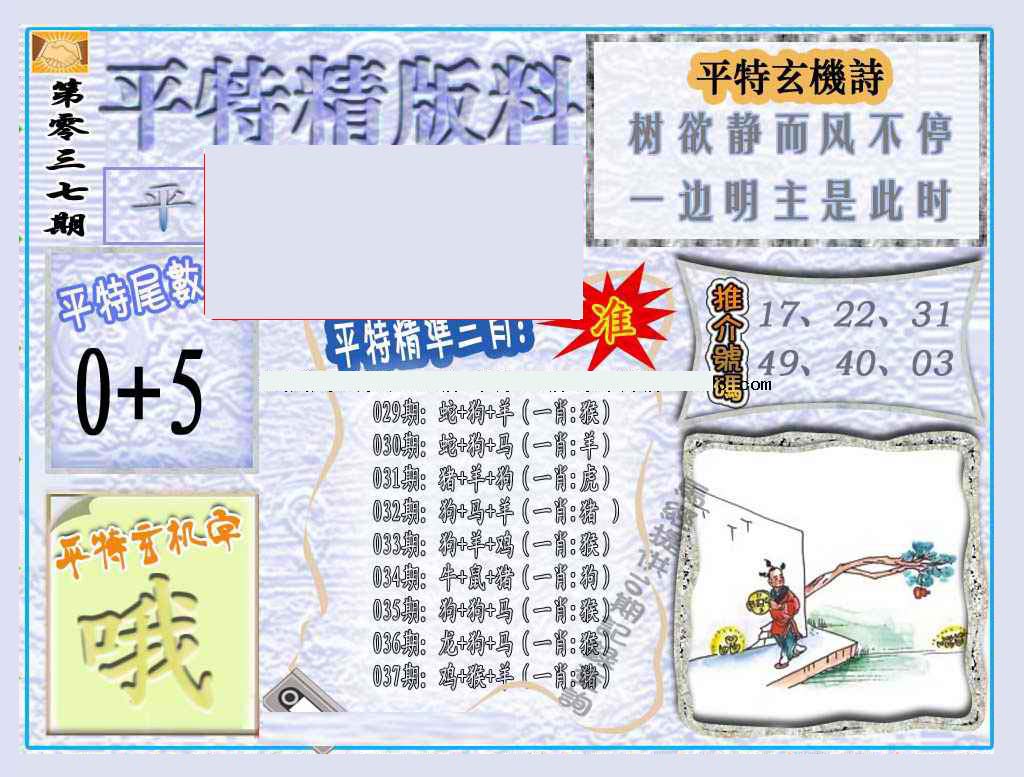 第零三七期
平特精版料
平
平特玄機詩
树欲静而风不停
一边明主是此时
平特尾數
0+5
平特精準三肖!
准
推介號碼
17、22、31
49、40、03
.com
029期: 蛇+狗+羊(一肖:猴)
030期: 蛇+狗+马(一肖:羊)
031期: 猪+羊+狗(一肖:虎)
032期: 狗+马+羊(一肖:猪 )
033期: 狗+羊+鸡(一肖:猴)
034期: 牛+鼠+猪(一肖:狗)
035期: 狗+狗+马(一肖:猴)
036期: 龙+狗+马(一肖:猴)
037期: 鸡+猴+羊(一肖:猪)
平特玄机字
哦